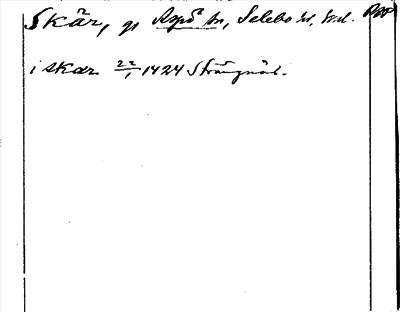 Skär, gs Aspö sn, Selebo hd, Sml. RAP
i skær 22/1 1424 Strängnäs.